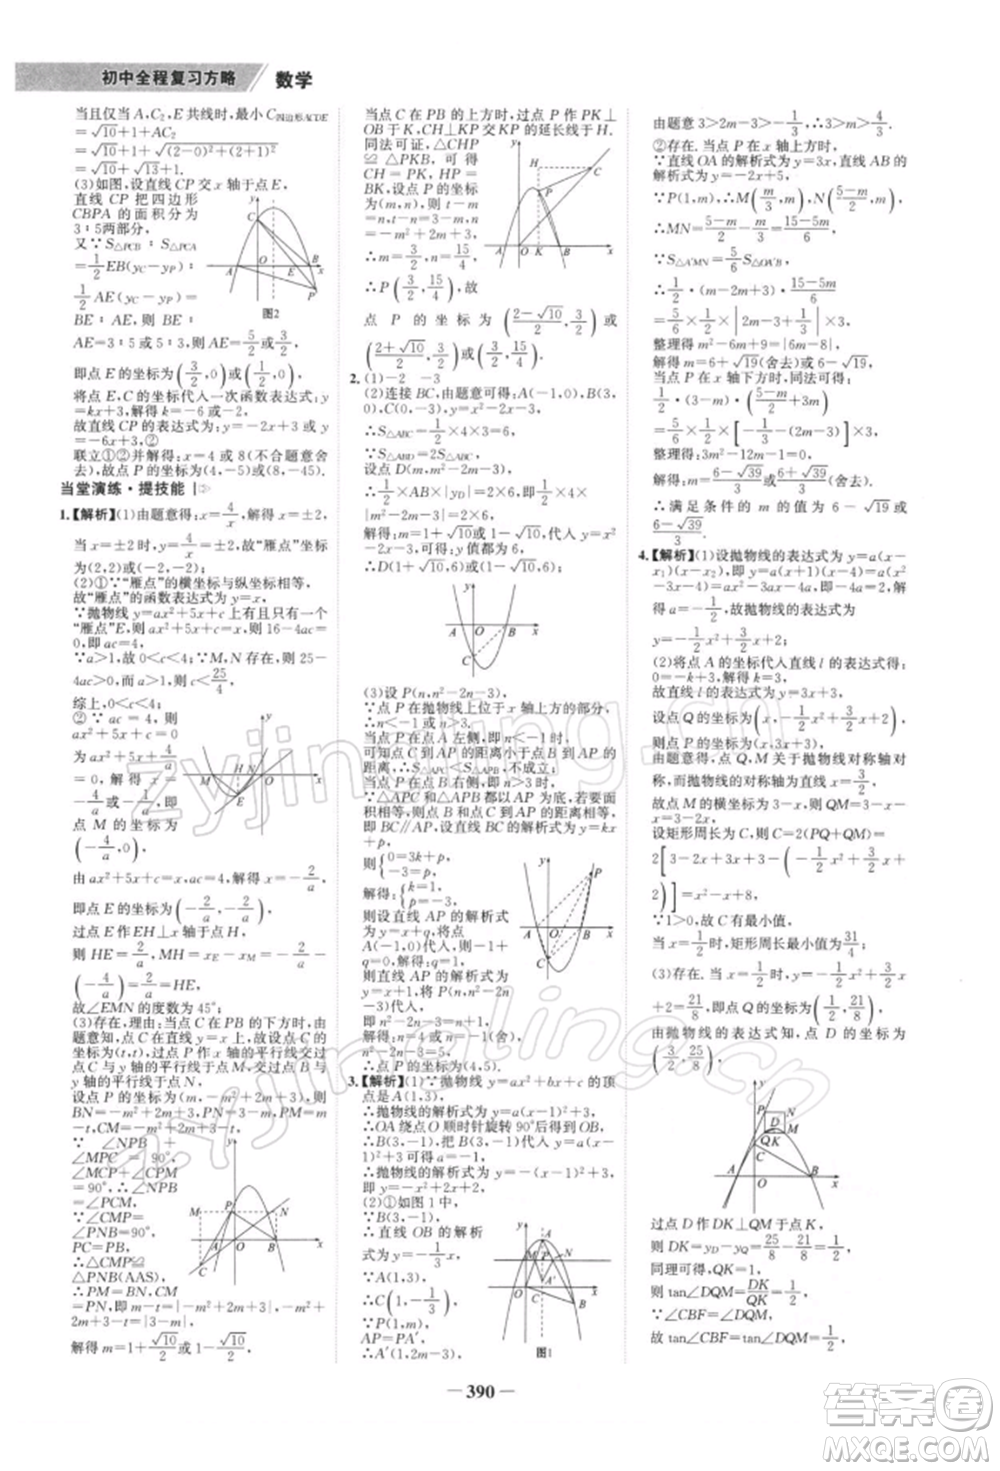 初中全程复习方略 数学
当且仅当 A,C₂,E 共线时,最小 C四边形ACDE
=√10+1+AC₂
=√10+1+√((2-0)²+(2+1)²)
=√10+√13+1.
(3)如图,设直线 CP 交 x 轴于点 E,
直线 CP 把四边形
CBPA 的面积分为
3∶5两部分,
又∵S△PCB∶S△PCA
=1/2 EB(yC-yP)∶
1/2 AE(yC-yP)=
BE∶AE,则 BE∶
图2
AE=3∶5或5∶3,则 AE=5/2或3/2,
即点 E 的坐标为(3/2,0)或(1/2,0),
将点 E,C 的坐标代入一次函数表达式:
y=kx+3,解得 k=-6或-2,
故直线 CP 的表达式:y=-2x+3或
y=-6x+3,②
联立①②并解得:x=4或8(不合题意舍
去),故点 P 的坐标为(4,-5)或(8,-45).
当堂演练·提技能
1.【解析】(1)由题意得:x=4/x,解得 x=±2,
当 x=±2时,y=4/x=±2,故“雁点”坐标
为(2,2)或(-2,-2);
(2)①∵“雁点”的横坐标与纵坐标相等,
故“雁点”的函数表达式为 y=x,
∵抛物线 y=ax²+5x+c 上有且只有一个
“雁点”E,则 ax²+5x+c=x,则16-4ac=
0,即 ac=4,
∵a>1,故0<c<4;∵M,N 存在,则25-
4ac>0,而 a>1,则 c<25/4,
综上,0<c<4;
②∵ac=4,则
ax²+5x+c=0为
ax²+5x+4/a
=0,解得 x=
-4/a或-1/a,即
点 M 的坐标为
(-4/a,0),
由 ax²+5x+c=x,解得 x=-2/a,
即点 E 的坐标为(-2/a,-2/a),
过点 E 作 EH⊥x 轴于点 H,
则 HE=2/a,MH=xE-xM=-2/a-
(-4/a)=2/a=HE,
故∠EMN 的度数为45°.
(3)存在,理由:当点 C 在 PB 的下方时,由
题意知,点 C 在直线 y=x 上,故设点 C 的
坐标为(t,t),过点 P 作 x 轴的平行线交过
点 C 与 y 轴的平行线于点 M,交过点 B 与
y 轴的平行线于点 N,
设点 P 的坐标为(m,-m²+2m+3),则
BN=-m²+2m+3,PN=3-m,PM=m
-t,CM=-m²+2m+3-t,
∵∠NPB+
∠MPC=90°,
∠MCP+∠CPM
=90°,∴∠NPB
=∠PCM,
∵∠CMP=
∠PNB=90°,
PC=PB,
∴△CMP≌
△PNB(AAS),
∴PM=BN,CM=
PN,即 m-t=|-m²+2m+3|,-m²+
2m+3-t=|3-m|,
解得 m=1+√10/2或1-√10/2,
当点 C 在 PB 的上方时,过点 P 作 PK⊥
OB 于 K,CH⊥KP 交 KP 的延长线于 H.
同法可证,△CHP
≌△PKB,可得
CH=PK,HP=
BK,设点 P 的坐标
为(m,n),则 t-m
=-m²+2m+3,t
-n=3-m,
∴m=3/2,n=15/4,
∴P(3/2,15/4),故
点 P 的坐标为((2-√10)/2,3/2)或
((2+√10)/2,3/2)或(3/2,15/4).
2.(1)-2 -3
(2)连接 BC,由题意可得:A(-1,0),B(3,
0),C(0,-3),y=x²-2x-3,
∴S△ABC=1/2×4×3=6,
∵S△ABD=2S△ABC,
设点 D(m,m²-2m-3),
∴1/2×AB×|yD|=2×6,即1/2×4×
|m²-2m-3|=2×6,
解得:x=1+√10或1-√10,代入 y=x²
-2x-3,可得:y 值都为6,
∴D(1+√10,6)或(1-√10,6).
(3)设 P(n,n²-2n-3),
∵点 P 在抛物线上位于 x 轴上方的部分,
∴n<-1或 n>3,
当点 P 在点 A 左侧,即 n<-1时,
可知点 C 到 AP 的距离小于点 B 到 AP 的
距离,∴S△APC<S△APB,不成立;
当点 P 在点 B 右侧,即 n>3时,
∵△APC 和△APB 都以 AP 为底,若要面
积相等,则点 B 和点 C 到 AP 的距离相等,
即 BC∥AP,设直线 BC 的解析式为 y=kx
+p,
则{0=3k+p,-3=p,
解得:{k=1,p=-3,
则设直线 AP 的解析式
为 y=x+q,将点
A(-1,0)代入,则-1+
q=0,解得:q=1,
则直线 AP 的解析式为
y=x+1,将 P(n,n²-
2n-3)代入,
即 n²-2n-3=n+1,
解得:n=4或 n=-1(舍),
n²-2n-3=5,
∴点 P 的坐标为(4,5).
3.【解析】(1)∵抛物线 y=ax²+bx+c 的顶
点是 A(1,3),
∴抛物线的解析式为 y=a(x-1)²+3,
∴OA 绕点 O 顺时针旋转90°后得到 OB,
∴B(3,-1),把 B(3,-1)代入 y=a(x-
1)²+3可得 a=-1,
∴抛物线的解析式为 y=-(x-1)²+3,
即 y=-x²+2x+2,
(2)①如图1中,
∵B(3,-1),
∴直线 OB 的解析
式为 y=-1/3x,
∵A(1,3),
∴C(1,-1/3),
∵P(1,m),
AP=PA′,
∴A′(1,2m-3),
图1
由题意3>2m-3>-1/3,∴3>m>4/3.
②存在.当点 P 在 x 轴上方时,
∵直线 OA 的解析式为 y=3x,直线 AB 的
解析式为 y=-2x+5,
∵P(1,m),∴M(m/3,m),N((5-m)/2,m),
∴MN=(5-m)/2-m/3=(15-5m)/6,
∵S△A′MN=5/6S△OA′B,
∴1/2·(m-2m+3)·(15-5m)/6
=5/6×1/2×|2m-3+1/3|×3,
整理得 m²-6m+9=|6m-8|,
解得 m=6+√19(舍去)或6-√19,
当点 P 在 x 轴下方时,
1/2·(3-m)·((5-m)/2+3m)
=5/6×1/2×[-1/3-(2m-3)]×3,
整理得:3m²-12m-1=0,
解得 m=(6-√39)/3或(6+√39)/3(舍去),
∴满足条件的 m 的值为6-√19或
(6-√39)/3.
4.【解析】(1)设抛物线的表达式为 y=a(x-
x₁)(x-x₂),即 y=a(x+1)(x-4)=a(x²
-3x-4)=ax²-3ax-4a,即-4a=2,解
得 a=-1/2,故抛物线的表达式为
y=-1/2x²+3/2x+2;
(2)将点 A 的坐标代入直线 l 的表达式得:
0=-k+3,解得 k=3,
故直线 l 的表达式为 y=3x+3,
设点 Q 的坐标为(x,-1/2x²+3/2x+2),
则点 P 的坐标为(x,3x+3),
由题意得,点 Q,M 关于抛物线对称轴对
称,而抛物线的对称轴为直线 x=3/2,
故点 M 的横坐标为3-x,则 QM=3-2x,
设矩形周长为 C,则 C=2(PQ+QM)=
2[3-2x+3x+3-(-1/2x²+3/2x
+2)]=x²-x+8,
∵1>0,故 C 有最小值,
当 x=1/2时,矩形周长最小值为31/4;
(3)存在.当 x=1/2时,y=-1/2x²+3/2x
+2=21/8,即点 Q 的坐标为(1/2,21/8),
由抛物线的表达式知,点 D 的坐标为
(3/2,25/8),
过点 D 作 DK⊥QM 于点 K,
则 DK=yD-yQ=25/8-21/8=1/2,
同理可得,QK=1,则 tan∠DQM=DK/QK=1/2,
∵∠CBF=∠DQM,
故 tan∠CBF=tan∠DQM=1/2,
— 390 —
zyjingling.cn
答案圈
MXQE.COM